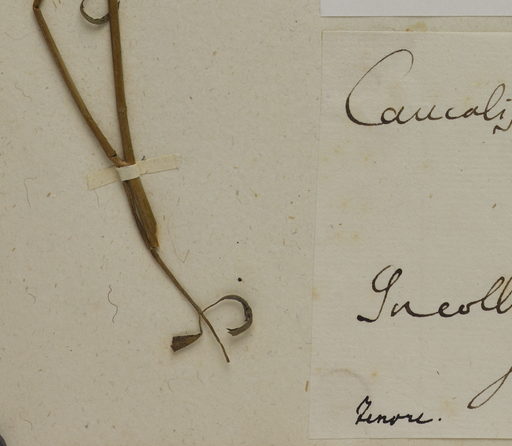 Caucalis
In coll
Tenore.